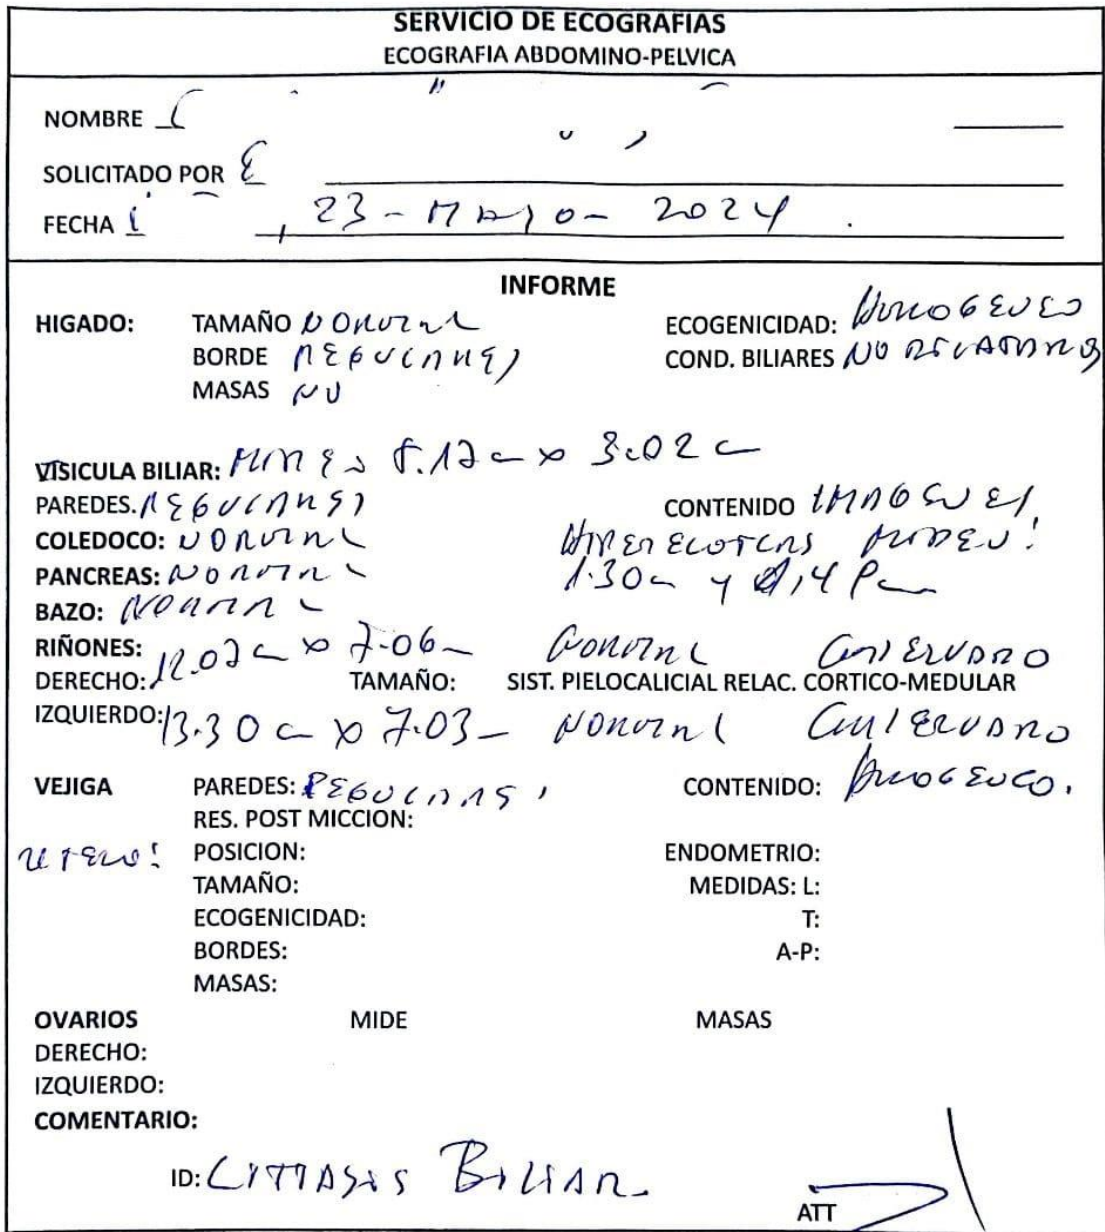 SERVICIO DE ECOGRAFIAS
ECOGRAFIA ABDOMINO-PELVICA
NOMBRE
SOLICITADO POR
FECHA 23 - Mayo - 2024.
INFORME
HIGADO: TAMAÑO NORMAL ECOGENICIDAD: HOMOGENEO
BORDE REGULARES COND. BILIARES NO DILATADOS
MASAS NO
VISICULA BILIAR: MIDE 3.02 c
PAREDES. REGULARES CONTENIDO IMAGENES
COLEDOCO: NORMAL HIPERECOICAS MIDEN:
PANCREAS: NORMAL 1.30 c y
BAZO: NORMAL
RIÑONES: 7.06 NORMAL CONSERVADO
DERECHO: TAMAÑO: SIST. PIELOCALICIAL RELAC. CORTICO-MEDULAR
IZQUIERDO: 13.30 c x 7.03 NORMAL CONSERVADO
VEJIGA PAREDES: REGULARES, CONTENIDO: HOMOGENEO.
RES. POST MICCION:
UTERO: POSICION: ENDOMETRIO:
TAMAÑO: MEDIDAS: L:
ECOGENICIDAD: T:
BORDES: A-P:
MASAS:
OVARIOS MIDE MASAS
DERECHO:
IZQUIERDO:
COMENTARIO:
ID: LITIASIS BILIAR.
ATT